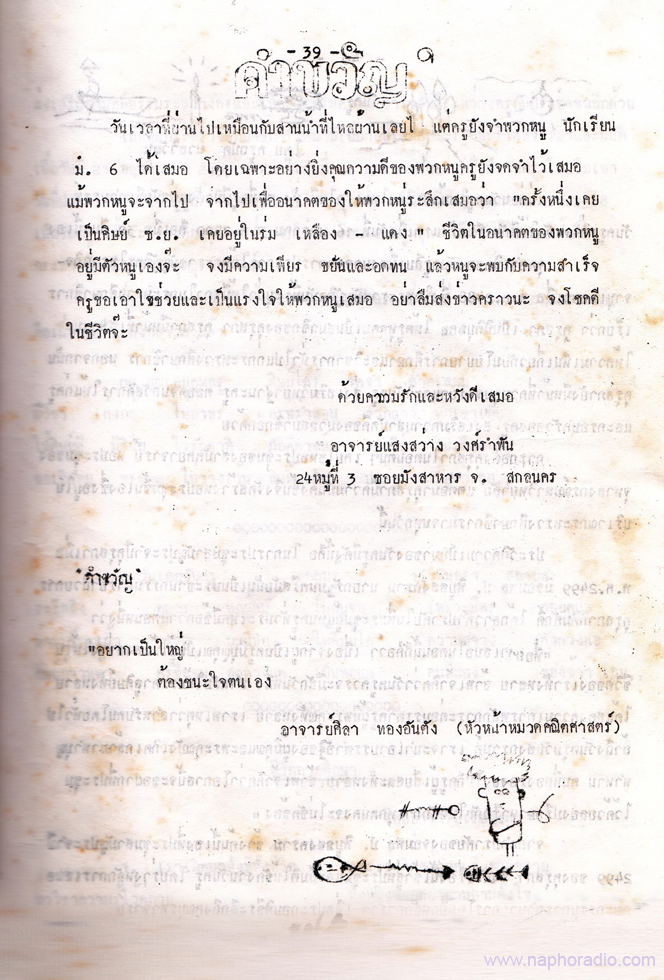 - 39 -
คำขวัญ
วันเวลาที่ผ่านไปเหมือนกับสายน้ำที่ไหลผ่านเลยไป แต่ครูยังจำพวกหนู นักเรียน
ม. 6 ได้เสมอ โดยเฉพาะอย่างยิ่งคุณความดีของพวกหนูครูยังจดจำไว้เสมอ
แม้พวกหนูจะจากไป จากไปเพื่ออนาคตของให้พวกหนูระลึกเสมอว่า "ครั้งหนึ่งเคย
เป็นศิษย์ ช.ย. เคยอยู่ในร่ม เหลือง - แดง " ชีวิตในอนาคตของพวกหนู
อยู่มีตัวหนูเองจ๊ะ จงมีความเพียร ขยันและอดทน แล้วหนูจะพบกับความสำเร็จ
ครูขอเอาใจช่วยและเป็นแรงใจให้พวกหนูเสมอ อย่าลืมส่งข่าวคราวนะ จงโชคดี
ในชีวิตจ๊ะ
ด้วยความรักและหวังดีเสมอ
อาจารย์แสงสว่าง วงศ์รำพัน
24หมู่ที่ 3 ซอยมังสาหาร จ. สกลนคร
"คำขวัญ"
"อยากเป็นใหญ่
ต้องชนะใจตนเอง
อาจารย์ศิลา ทองอันตัง (หัวหน้าหมวดคณิตศาสตร์)
www.naphoradio.com